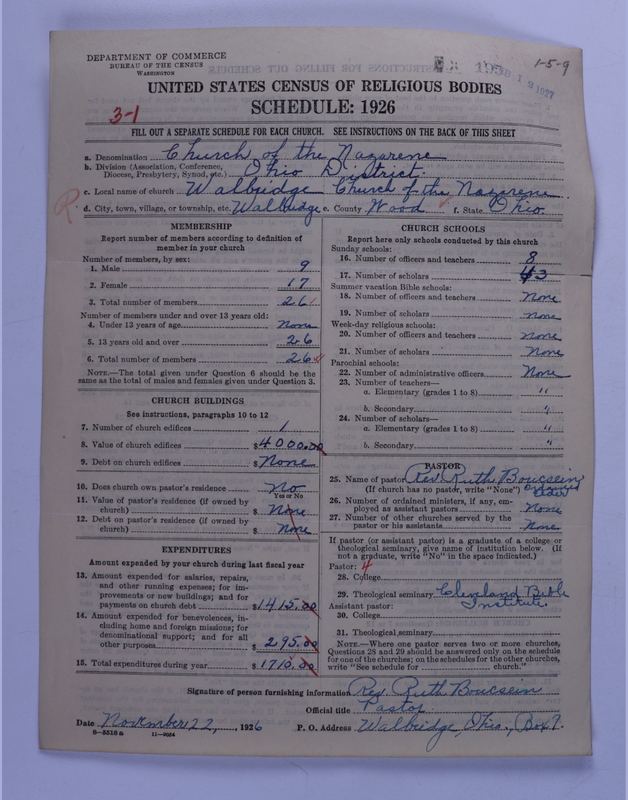 DEPARTMENT OF COMMERCE
BUREAU OF THE CENSUS
WASHINGTON
1-5-9
UNITED STATES CENSUS OF RELIGIOUS BODIES
SCHEDULE: 1926
3-1
FILL OUT A SEPARATE SCHEDULE FOR EACH CHURCH. SEE INSTRUCTIONS ON THE BACK OF THIS SHEET
a. Denomination Church of the Nazarene
b. Division (Association, Conference, Diocese, Presbytery, Synod, etc.) Ohio District.
c. Local name of church Walbridge Church of the Nazarene.
R. d. City, town, village, or township, etc. Walbridge e. County Wood f. State Ohio.
MEMBERSHIP
Report number of members according to definition of
member in your church
Number of members, by sex:
1. Male 9
2. Female 17
3. Total number of members 26
Number of members under and over 13 years old:
4. Under 13 years of age None
5. 13 years old and over 26
6. Total number of members 26
NOTE.—The total given under Question 6 should be
same as the total of males and females given under Question 3.
CHURCH BUILDINGS
See instructions, paragraphs 10 to 12
7. Number of church edifices 1
8. Value of church edifices $4000.00
9. Debt on church edifices $None
10. Does church own pastor's residence No
Yes or No
11. Value of pastor's residence (if owned by
church) $ None
12. Debt on pastor's residence (if owned by
church) $ None
EXPENDITURES
Amount expended by your church during last fiscal year
13. Amount expended for salaries, repairs,
and other running expenses; for im-
provements or new buildings; and for
payments on church debt $1415.00
14. Amount expended for benevolences, in-
cluding home and foreign missions; for
denominational support; and for all
other purposes $ 295.00
15. Total expenditures during year $1710.00
CHURCH SCHOOLS
Report here only schools conducted by this church
Sunday schools:
16. Number of officers and teachers 8
17. Number of scholars 43
Summer vacation Bible schools:
18. Number of officers and teachers None
19. Number of scholars None
Week-day religious schools:
20. Number of officers and teachers None
21. Number of scholars None
Parochial schools:
22. Number of administrative officers None
23. Number of teachers—
a. Elementary (grades 1 to 8) "
b. Secondary "
24. Number of scholars—
a. Elementary (grades 1 to 8) "
b. Secondary "
PASTOR
25. Name of pastor Rev. Ruth Boucsein
(If church has no pastor, write "None") Ordained Elder
26. Number of ordained ministers, if any, em-
ployed as assistant pastors None
27. Number of other churches served by the
pastor or his assistants None
If pastor (or assistant pastor) is a graduate of a college or
theological seminary, give name of institution below. (If
not a graduate, write "No" in the space indicated.)
Pastor: 4
28. College
29. Theological seminary Cleveland Bible
Assistant pastor: Institute.
30. College
31. Theological seminary
NOTE.—Where one pastor serves two or more churches,
Questions 28 and 29 should be answered only on the schedule
for one of the churches; on the schedules for the other churches,
write "See schedule for church."
Signature of person furnishing information Rev. Ruth Boucsein
Official title Pastor
Date November 22, 1926 P. O. Address Walbridge, Ohio., Box 7.
8-5518 a 11-9024